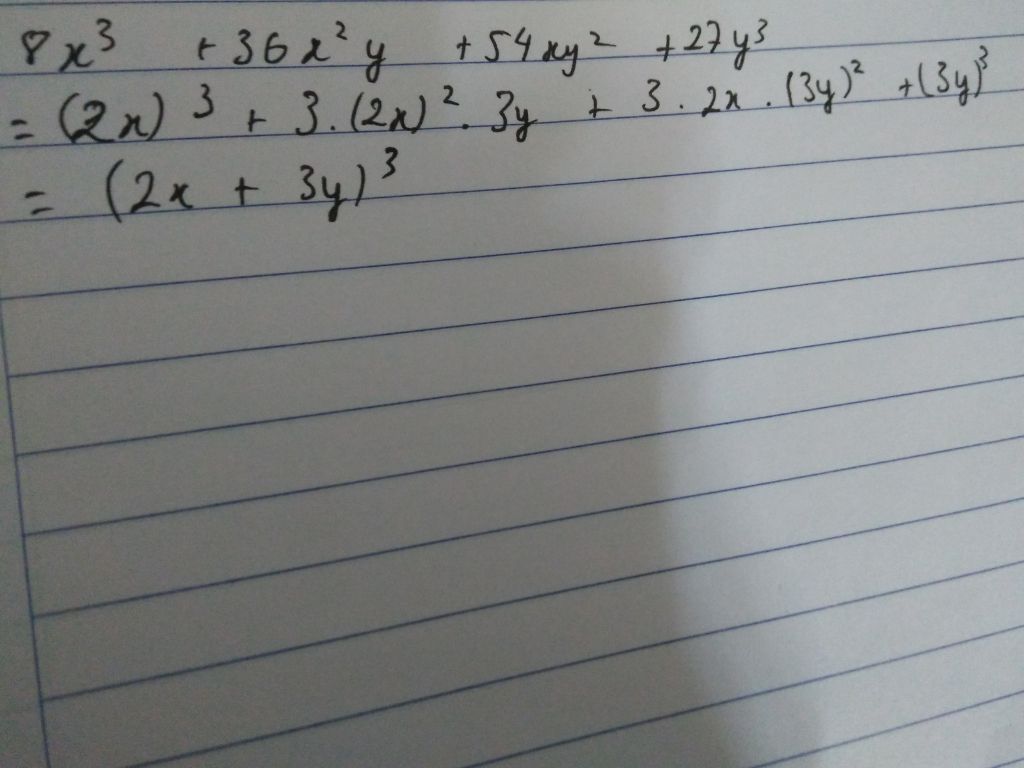 8x³ + 36x²y + 54xy² + 27y³
= (2x)³ + 3.(2x)². 3y + 3 . 2x . (3y)² + (3y)³
= (2x + 3y)³